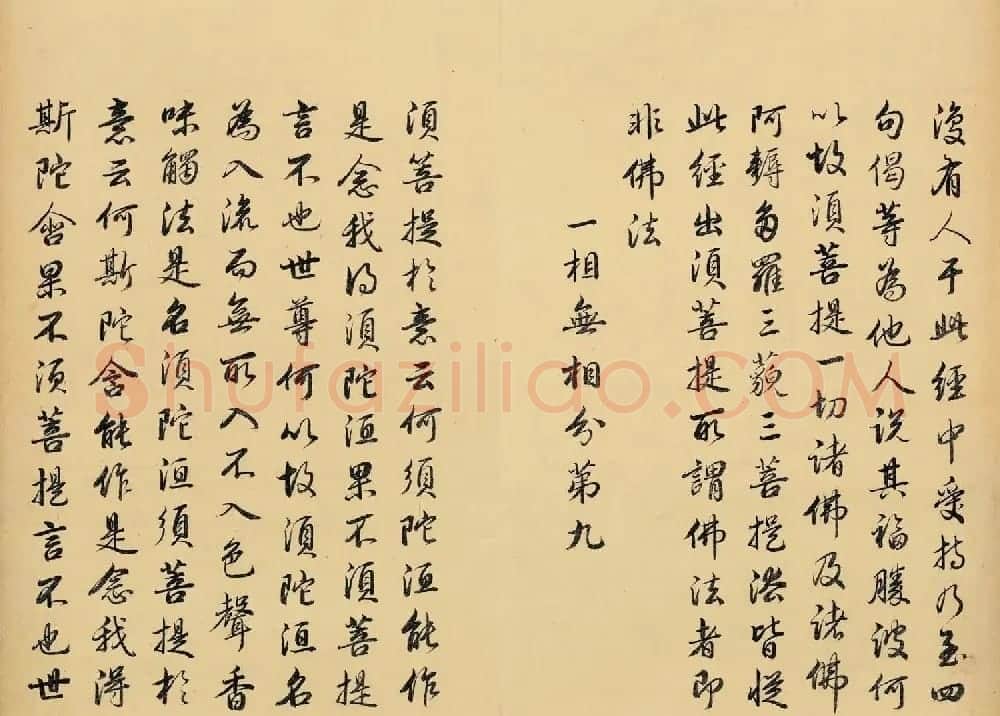 復有人于此經中受持乃至四
句偈等為他人說其福勝彼何
以故須菩提一切諸佛及諸佛
阿耨多羅三藐三菩提法皆從
此經出須菩提所謂佛法者即
非佛法
一相無相分第九
須菩提於意云何須陀洹能作
是念我得須陀洹果不須菩提
言不也世尊何以故須陀洹名
為入流而無所入不入色聲香
味觸法是名須陀洹須菩提於
意云何斯陀含能作是念我得
斯陀含果不須菩提言不也世
Shufaziliao.COM